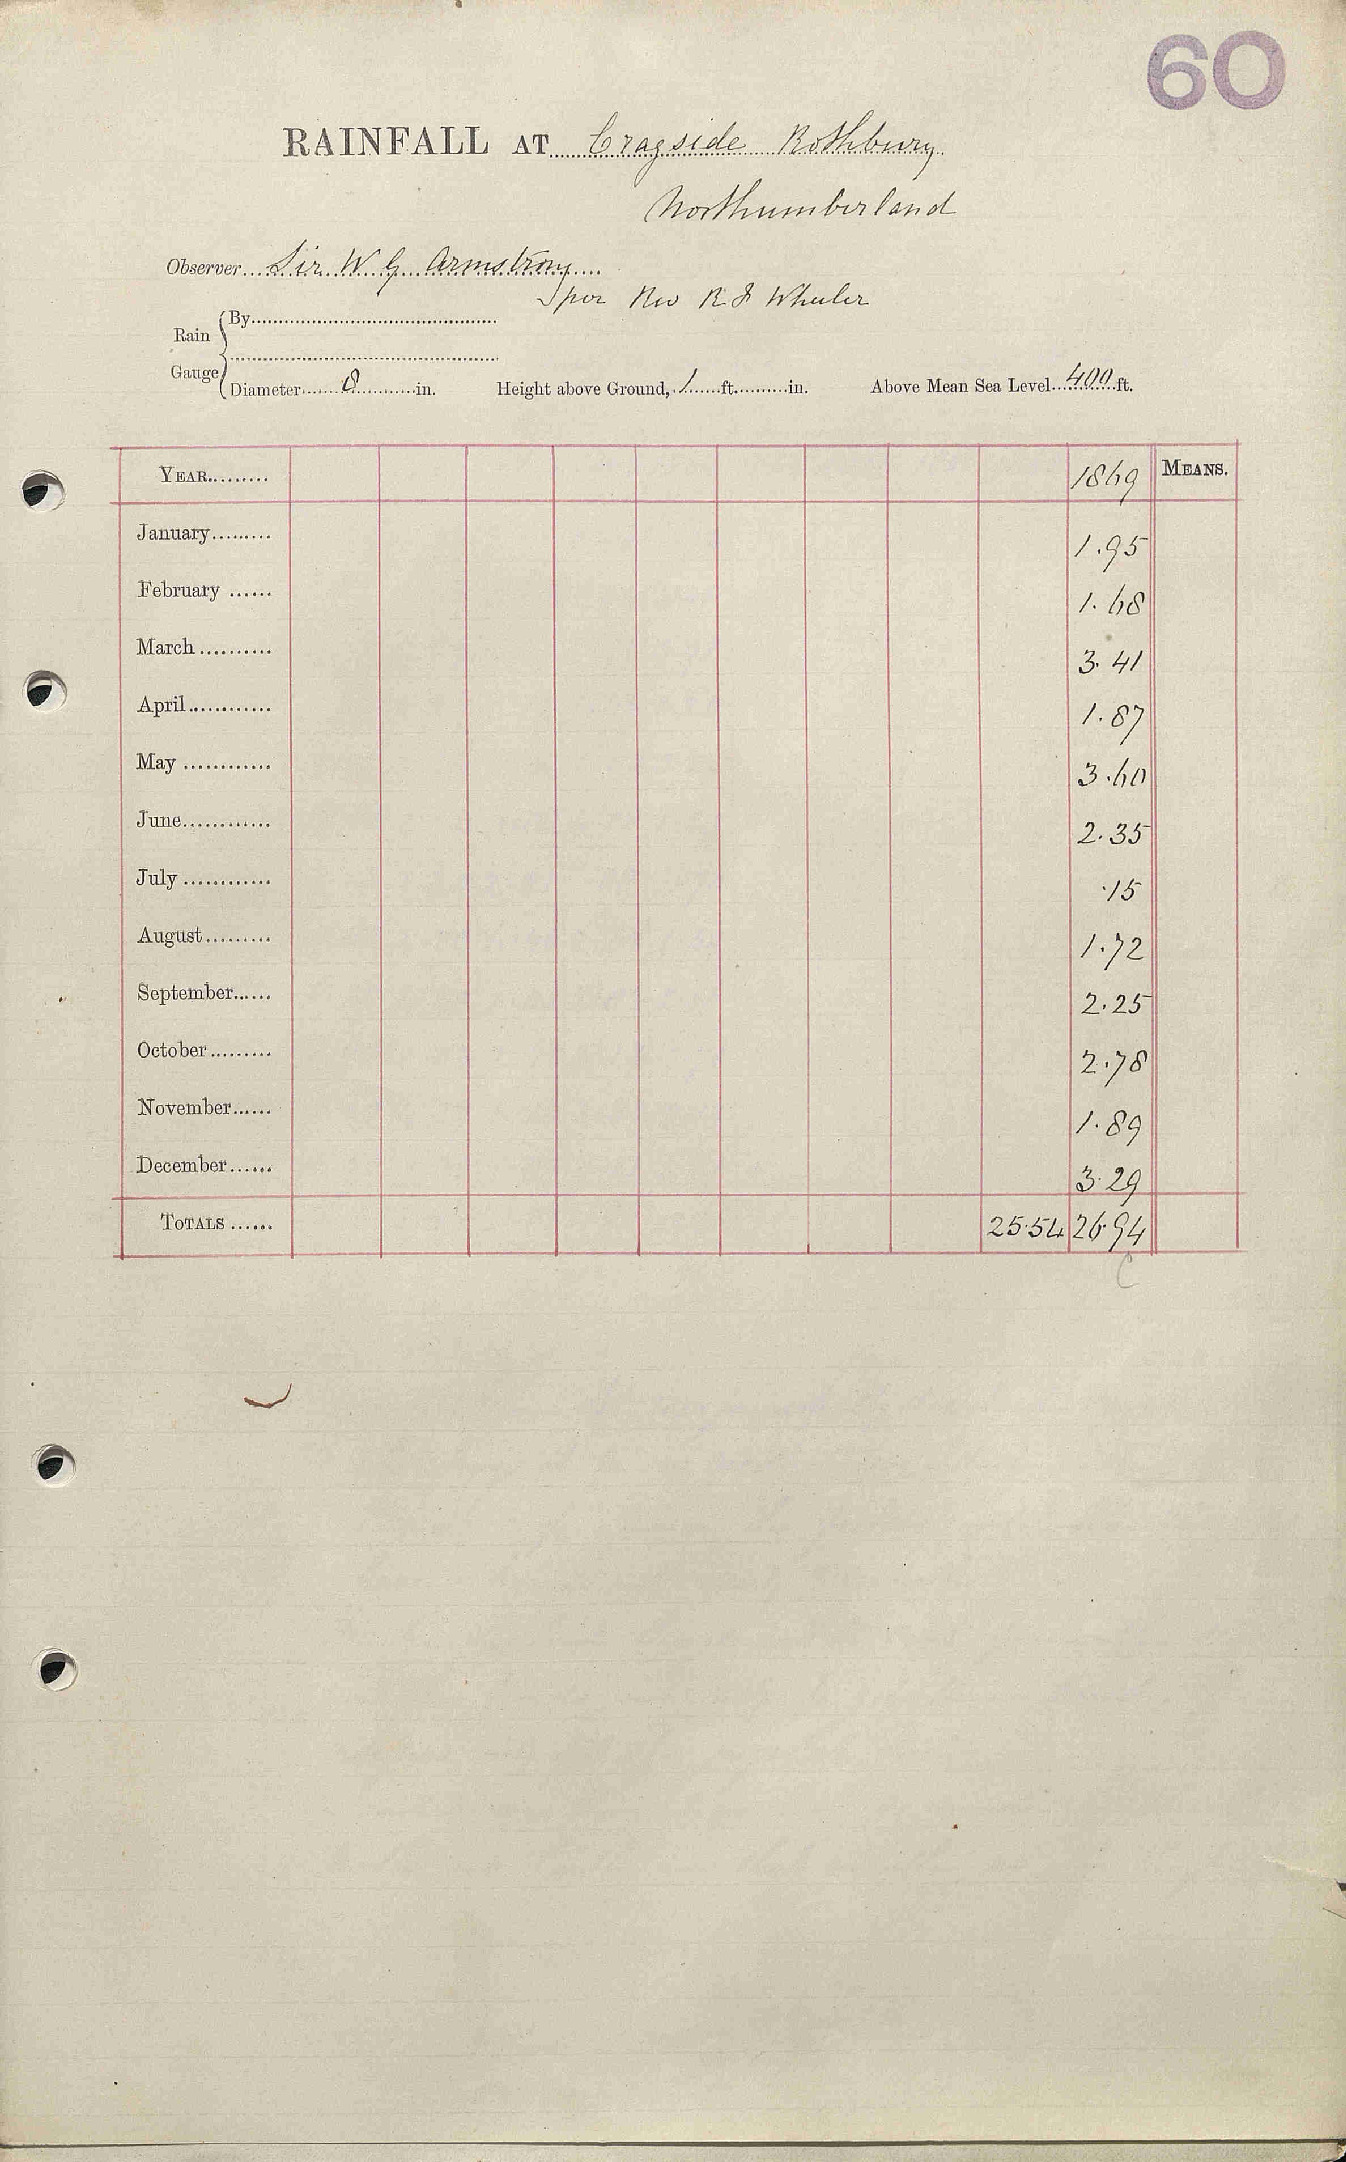 60
RAINFALL AT Cragside Rothbury
Northumberland
Observer Sir W G Armstrong
per Rev R F Wheeler
Rain Gauge
By
Diameter 8 in. Height above Ground, 1 ft. in. Above Mean Sea Level 400 ft.
YEAR 1869 MEANS.
January 1.95
February 1.68
March 3.41
April 1.87
May 3.60
June 2.35
July .15
August 1.72
September 2.25
October 2.78
November 1.89
December 3.29
TOTALS 25.54 26.94
C